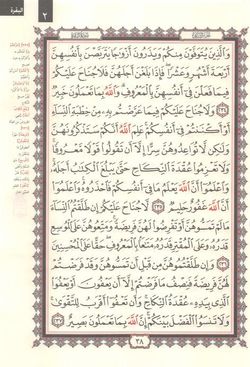 البقرة
٢
وَالَّذِينَ يُتَوَفَّوْنَ مِنكُمْ وَيَذَرُونَ أَزْوَاجًا يَتَرَبَّصْنَ بِأَنفُسِهِنَّ
أَرْبَعَةَ أَشْهُرٍ وَعَشْرًا فَإِذَا بَلَغْنَ أَجَلَهُنَّ فَلَا جُنَاحَ عَلَيْكُمْ
فِيمَا فَعَلْنَ فِي أَنفُسِهِنَّ بِالْمَعْرُوفِ وَاللَّهُ بِمَا تَعْمَلُونَ خَبِيرٌ
٢٣٤ وَلَا جُنَاحَ عَلَيْكُمْ فِيمَا عَرَّضْتُم بِهِ مِنْ خِطْبَةِ النِّسَاءِ
أَوْ أَكْنَنتُمْ فِي أَنفُسِكُمْ عَلِمَ اللَّهُ أَنَّكُمْ سَتَذْكُرُونَهُنَّ
وَلَٰكِن لَّا تُوَاعِدُوهُنَّ سِرًّا إِلَّا أَن تَقُولُوا قَوْلًا مَّعْرُوفًا
وَلَا تَعْزِمُوا عُقْدَةَ النِّكَاحِ حَتَّىٰ يَبْلُغَ الْكِتَابُ أَجَلَهُ
وَاعْلَمُوا أَنَّ اللَّهَ يَعْلَمُ مَا فِي أَنفُسِكُمْ فَاحْذَرُوهُ وَاعْلَمُوا
أَنَّ اللَّهَ غَفُورٌ حَلِيمٌ ٢٣٥ لَّا جُنَاحَ عَلَيْكُمْ إِن طَلَّقْتُمُ النِّسَاءَ
مَا لَمْ تَمَسُّوهُنَّ أَوْ تَفْرِضُوا لَهُنَّ فَرِيضَةً وَمَتِّعُوهُنَّ عَلَى الْمُوسِعِ
قَدَرُهُ وَعَلَى الْمُقْتِرِ قَدَرُهُ مَتَاعًا بِالْمَعْرُوفِ حَقًّا عَلَى الْمُحْسِنِينَ
٢٣٦ وَإِن طَلَّقْتُمُوهُنَّ مِن قَبْلِ أَن تَمَسُّوهُنَّ وَقَدْ فَرَضْتُمْ
لَهُنَّ فَرِيضَةً فَنِصْفُ مَا فَرَضْتُمْ إِلَّا أَن يَعْفُونَ أَوْ يَعْفُوَا
الَّذِي بِيَدِهِ عُقْدَةُ النِّكَاحِ وَأَن تَعْفُوا أَقْرَبُ لِلتَّقْوَىٰ
وَلَا تَنسَوُا الْفَضْلَ بَيْنَكُمْ إِنَّ اللَّهَ بِمَا تَعْمَلُونَ بَصِيرٌ ٢٣٧
٣٨